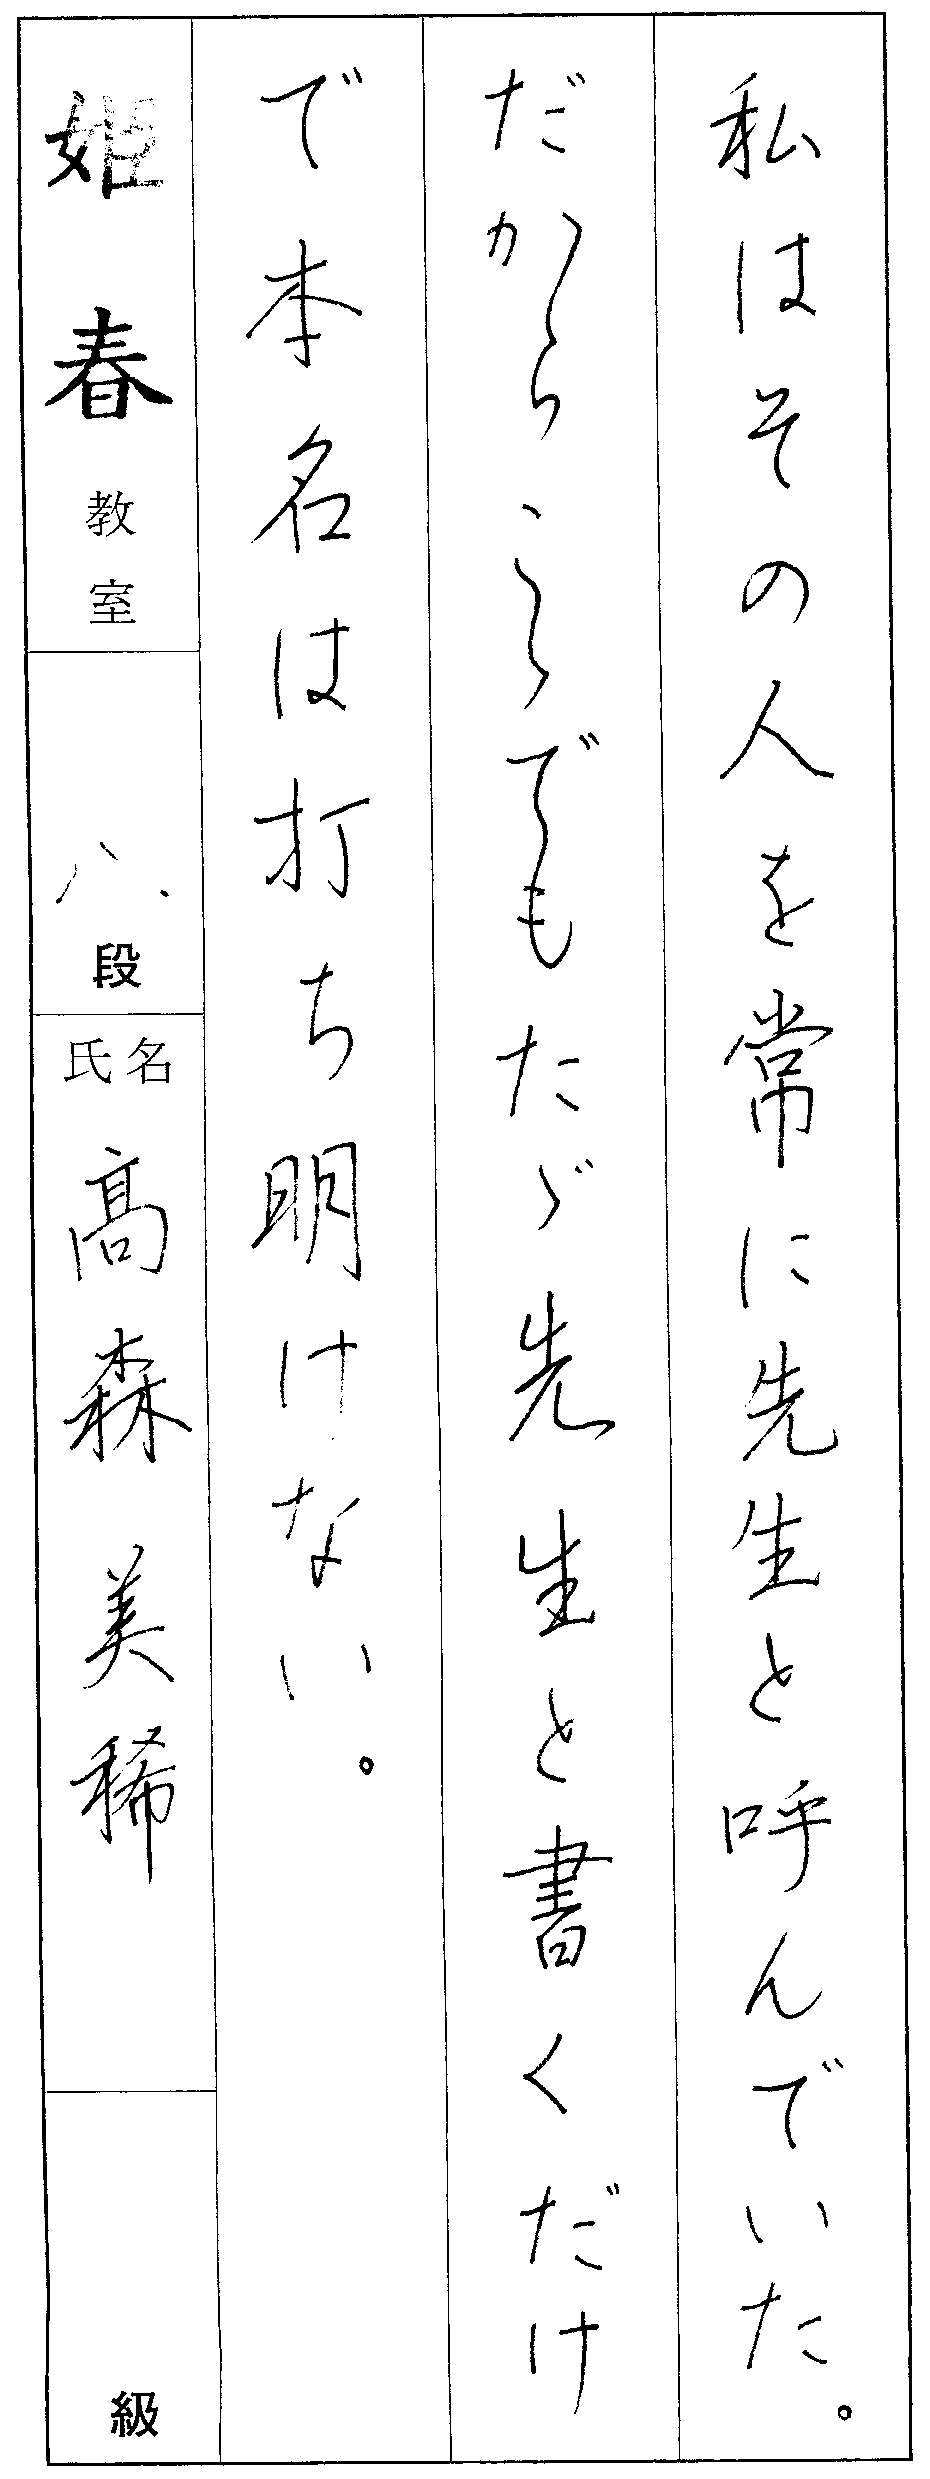 私はその人を常に先生と呼んでいた。
だからこゝでもたゞ先生と書くだけ
で本名は打ち明けない。
姫春教室
八段
氏名 髙森美稀
級